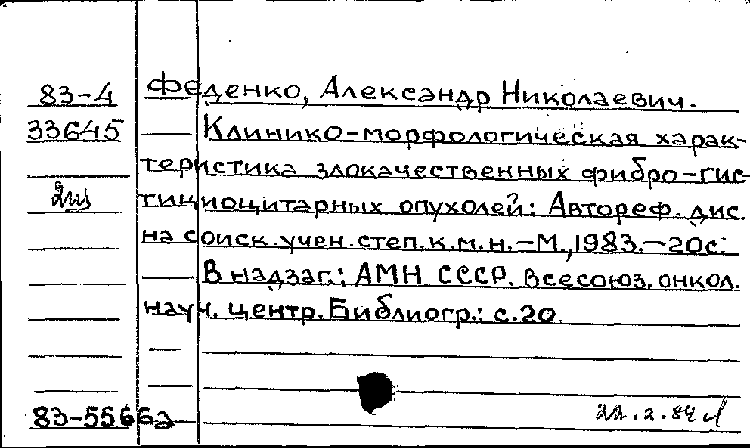 83-4 Феденко, Александр Николаевич.
33645 Клинико-морфологическая харак-
теристика злокачественных фибро-гис-
2щ тициоцитарных опухолей: Автореф. дис.
на соиск. учен. степ. к.м.н. – М., 1983. – 20с.
В надзаг.: АМН СССР. Всесоюз. онкол.
науч. центр. Библиогр.: с.20.
83-5566а 22.2.84